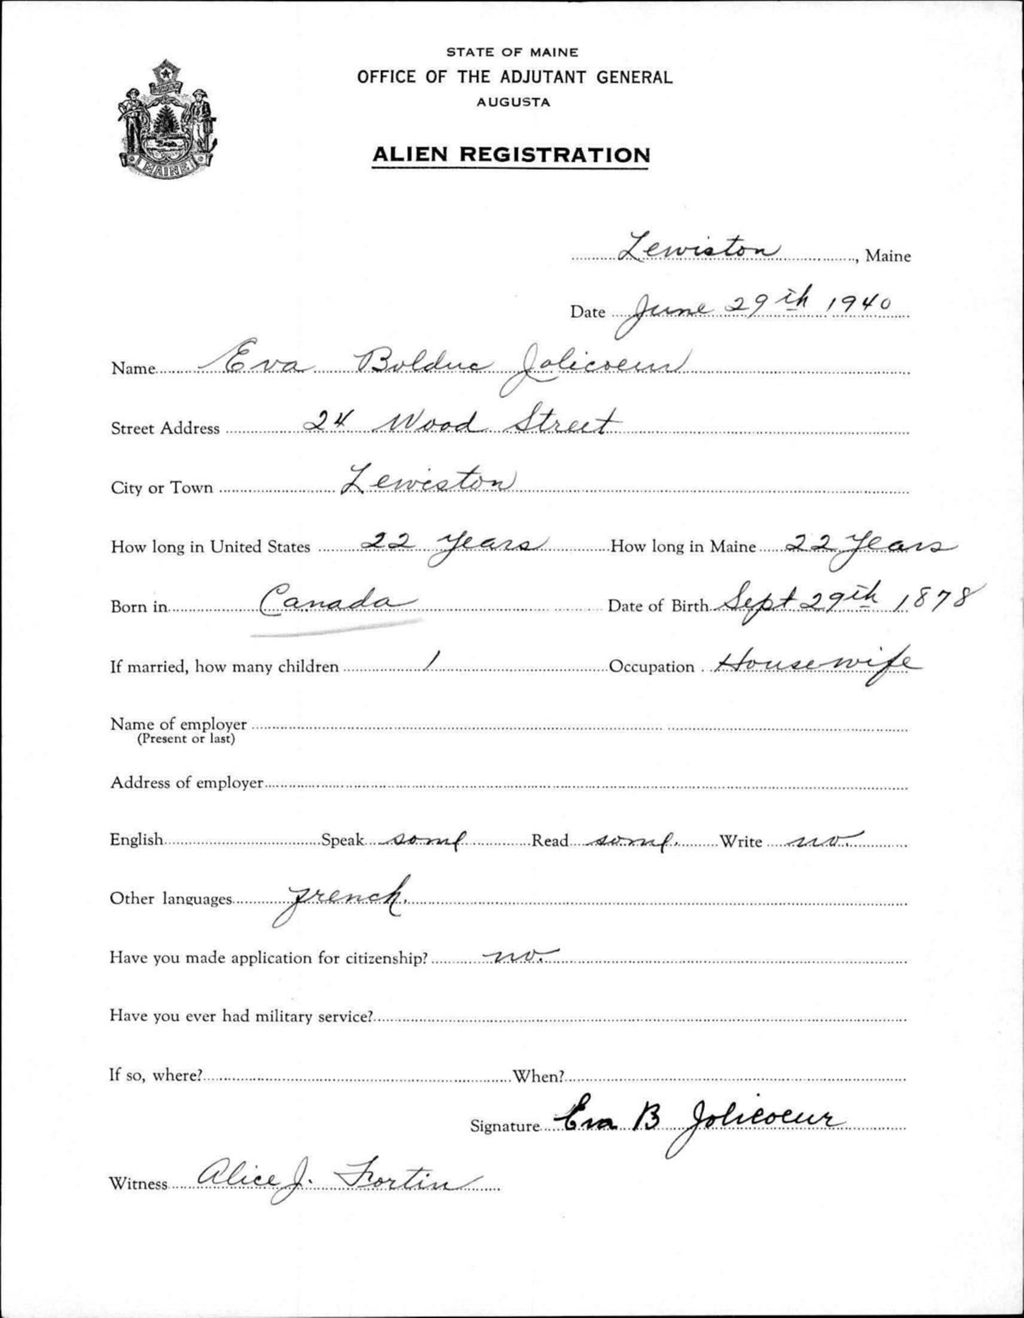 STATE OF MAINE
OFFICE OF THE ADJUTANT GENERAL
AUGUSTA
ALIEN REGISTRATION
MAINE
Lewiston, Maine
Date June 29th 1940
Name Eva Bolduc Jolicoeur
Street Address 24 Wood Street
City or Town Lewiston
How long in United States 22 years How long in Maine 22 Years
Born in Canada Date of Birth Sept 29th 1878
If married, how many children 1 Occupation Housewife
Name of employer
(Present or last)
Address of employer
English Speak some Read some. Write no.
Other languages french.
Have you made application for citizenship? no.
Have you ever had military service?
If so, where? When?
Signature Eva B Jolicoeur
Witness Alice J. Fortin